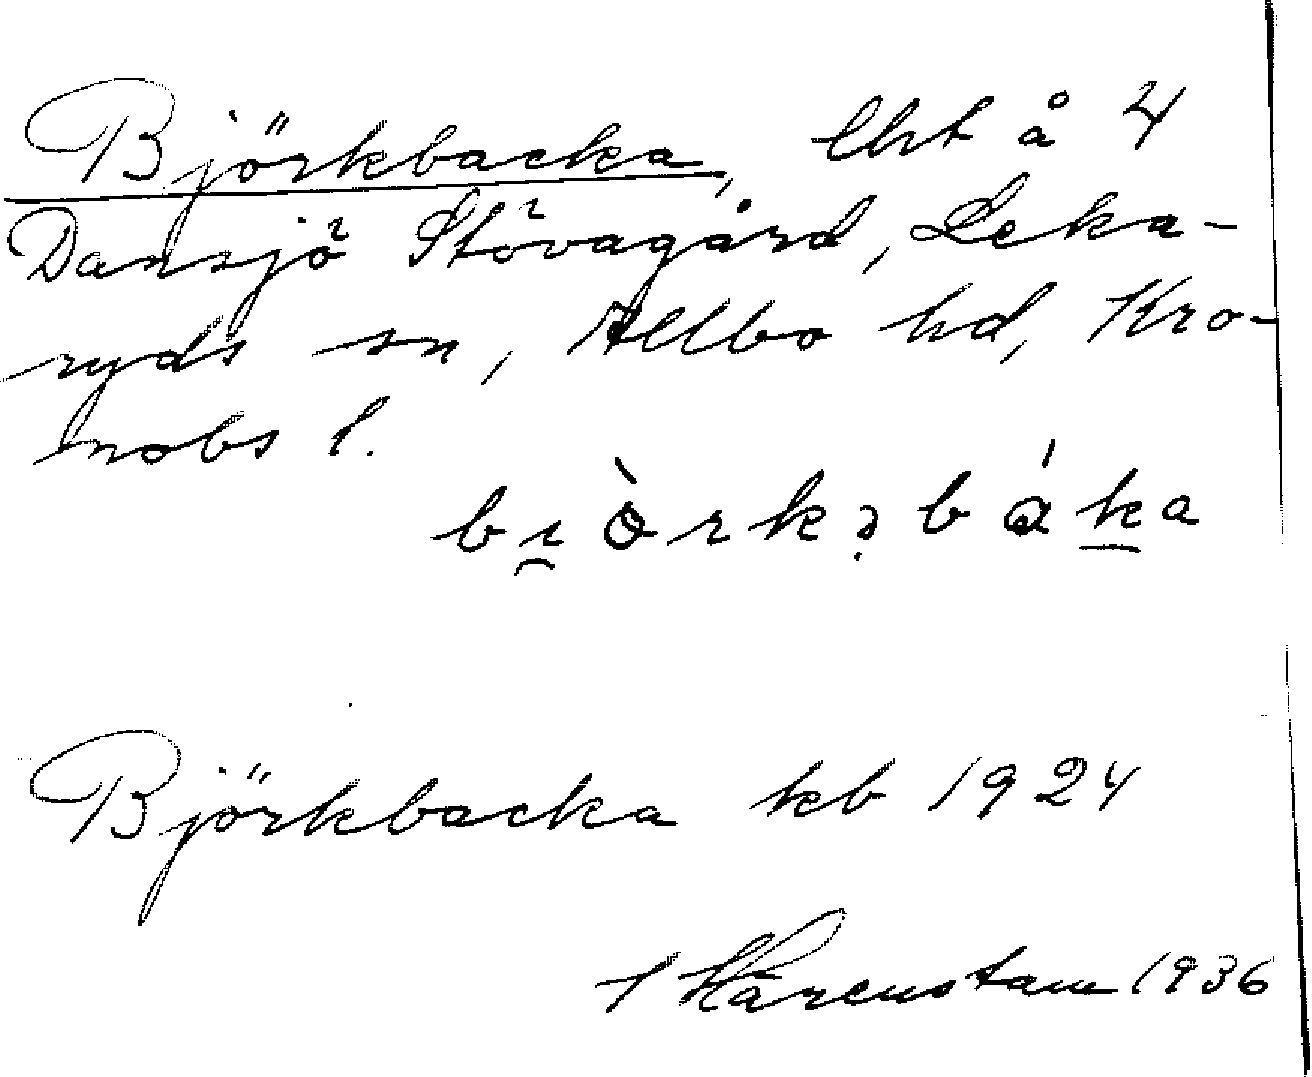 Björkbacka, lht å 4
Dansjö Stövagård, Leka-
ryds sn, Allbo hd, Kro-
nobs l.
Björkbacka kb 1924
Härenstam 1936